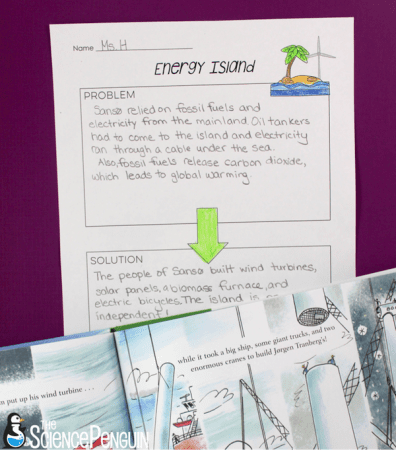 Name Ms. H
Energy Island
PROBLEM
Samsø relied on fossil fuels and
electricity from the mainland. Oil tankers
had to come to the island and electricity
ran through a cable under the sea.
Also, fossil fuels release carbon dioxide,
which leads to global warming.
SOLUTION
The people of Samsø built wind turbines,
solar panels, a biomass furnace, and
electric bicycles. The island is
independent!
n put up his wind turbine . . .
while it took a big ship, some giant trucks, and two
enormous cranes to build Jørgen Tranberg's!
THE
SciencePenguin